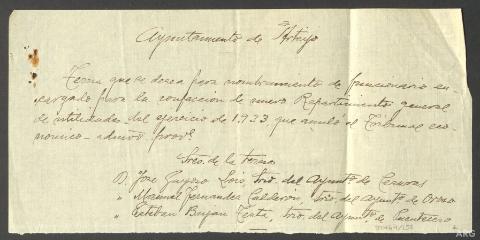 Ayuntamiento de Arteijo
Terna que se desea para nombramiento de funcionario en-
cargado para la confección de nuevo Repartimiento general
de utilidades del ejercicio de 1923 que anuló el Tribunal eco-
nomico-admvo provl
Sres. de la terna
D. Jose Gregorio Lois, Srio. del Ayuntº de
" Manuel Fernandez Calderón, Srio. del Ayuntº de Oroso
" Esteban, Srio. del Ayuntº de
ARG